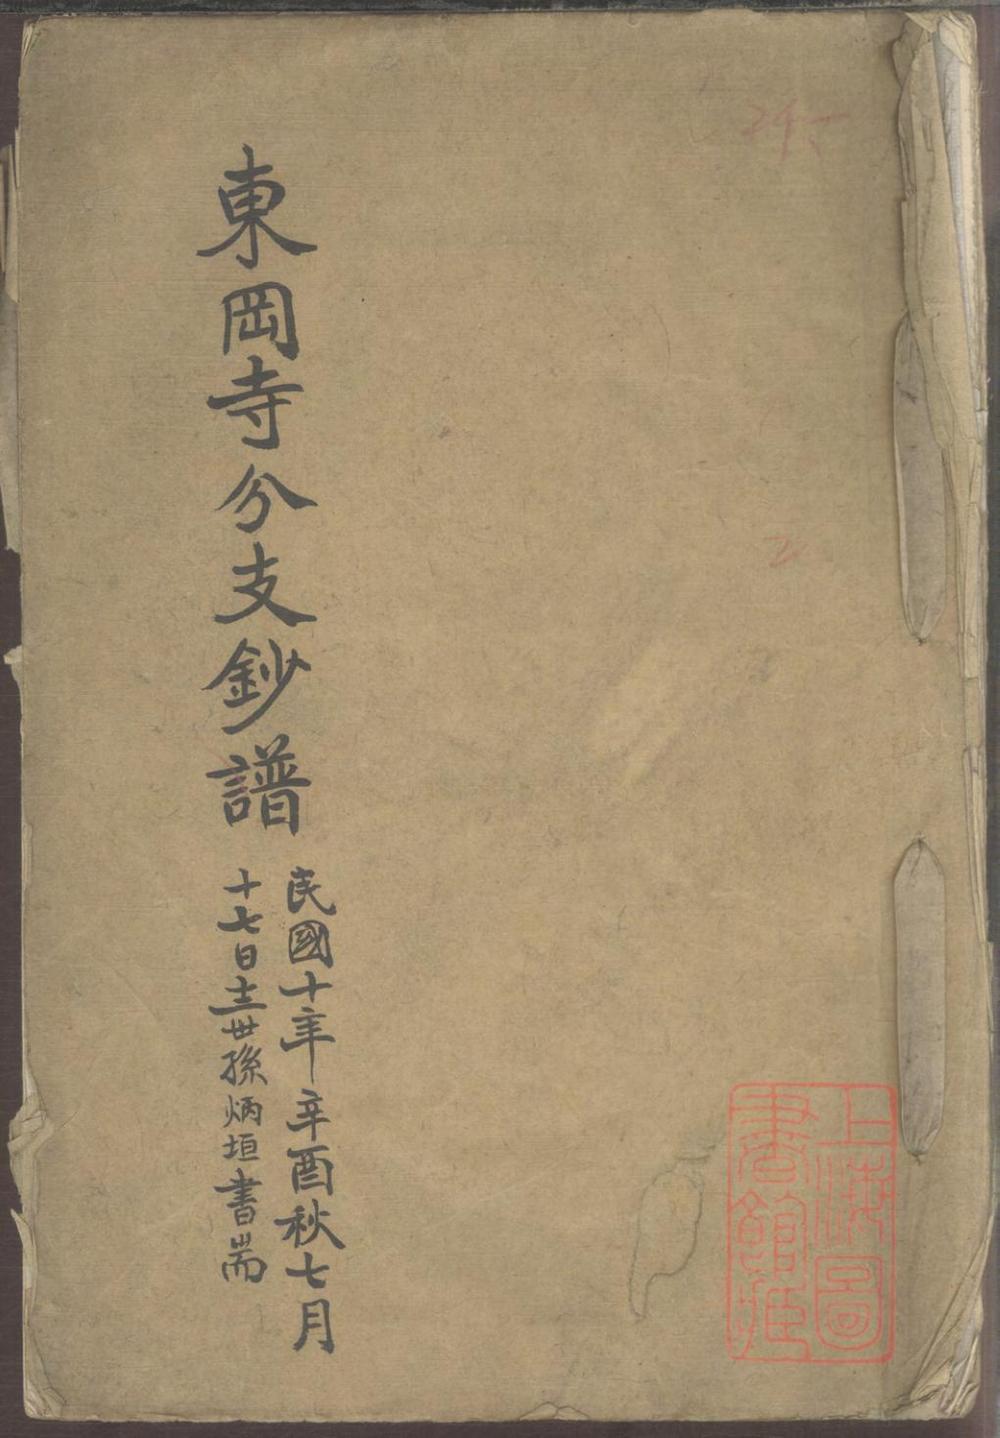 東岡寺分支鈔譜
民國十年辛酉秋七月
十七日十三世孫炳垣書耑
上海圖
書館藏